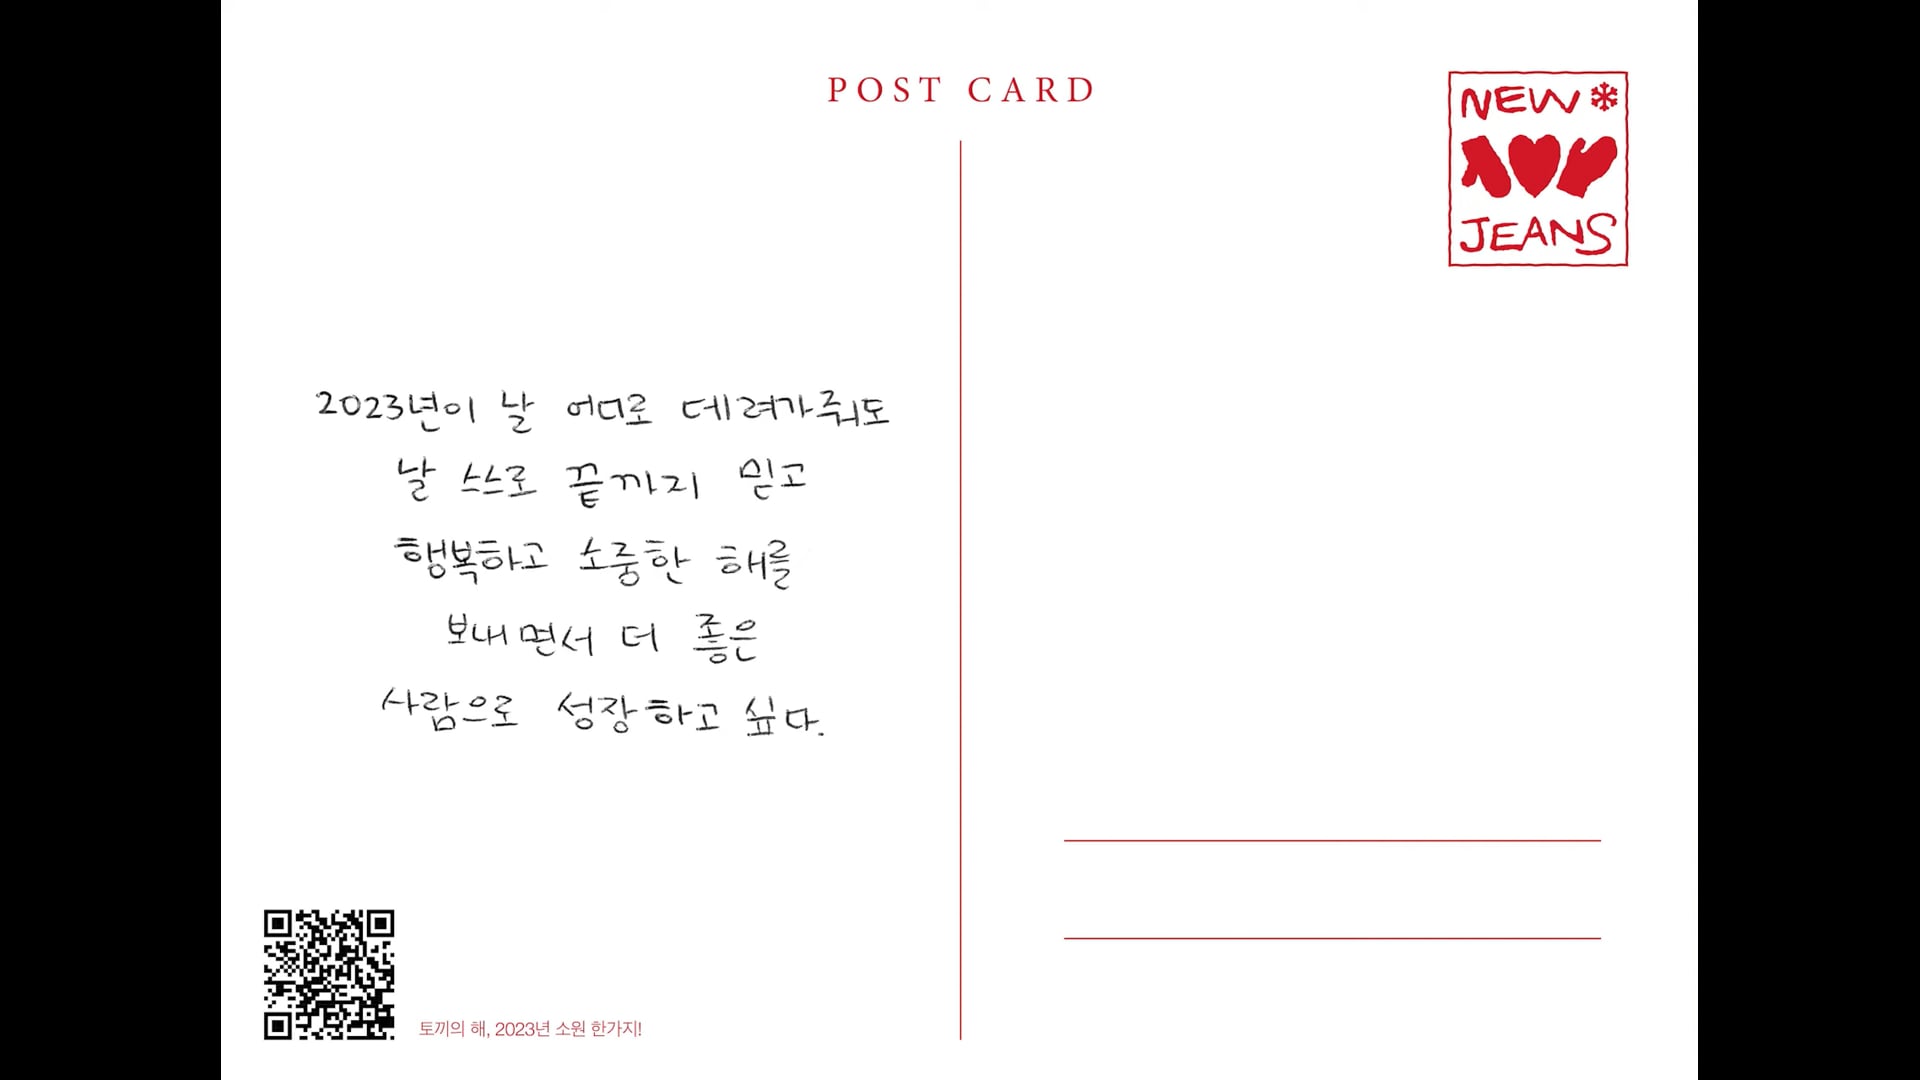 POST CARD
NEW
JEANS
2023년이 날 어디로 데려가줘도
날 스스로 끝까지 믿고
행복하고 소중한 해를
보내면서 더 좋은
사람으로 성장하고 싶다.
토끼의 해, 2023년 소원 한가지!